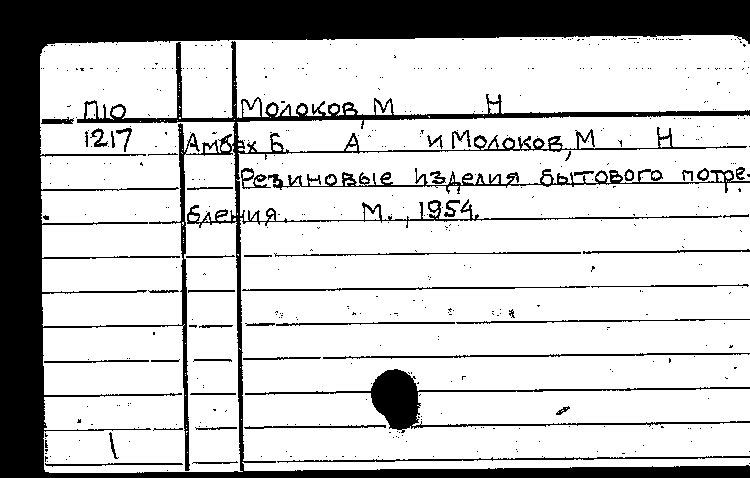 П10 Молоков, М Н
1217 Амбах, Б. А и Молоков, М. Н
Резиновые изделия бытового потре-
бления. М., 1954.